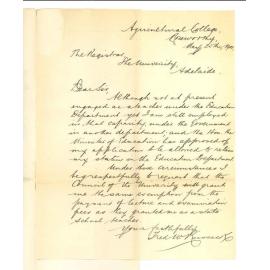 Agricultural College,
Roseworthy,
The Registrar,
The University,
Adelaide.
Dear Sir,
Although not at present
engaged as a teacher under the Education
Department yet I am still employed
in that capacity, under the Government
in another department, and the Hon. the
Minister of Education has approved of
my application to be allowed to retain
my status in the Education Department
Under these circumstances I
beg respectfully to request that the
Council of the University will grant
me the same exemption from the
payment of lecture and examination
fees as they granted me as a state
school teacher.
Yours faithfully
Fred W.